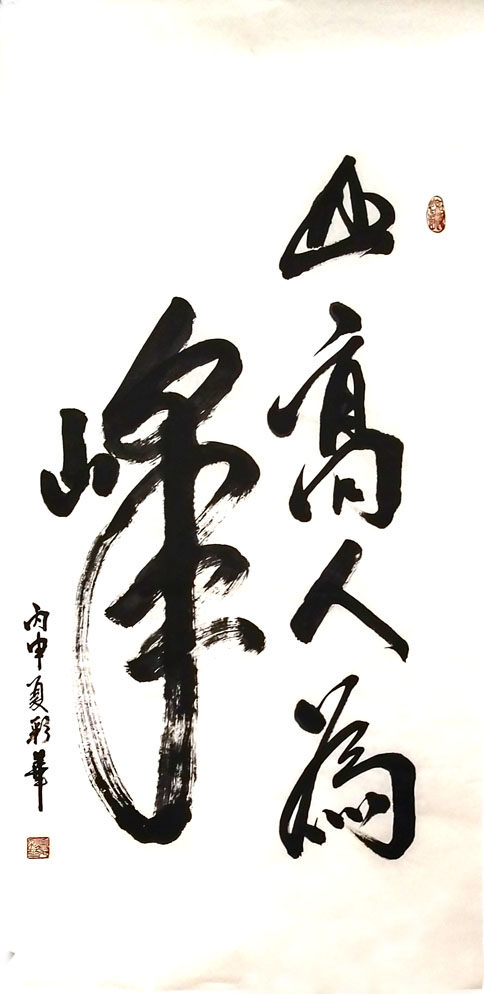 山高人為
峰
丙申夏彩華